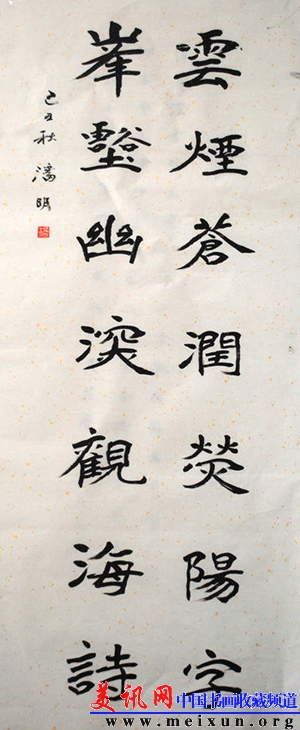 雲煙蒼潤熒陽定
峯壑幽深觀海詩
己丑秋潘明
美讯网 中国书画收藏频道
www.meixun.org